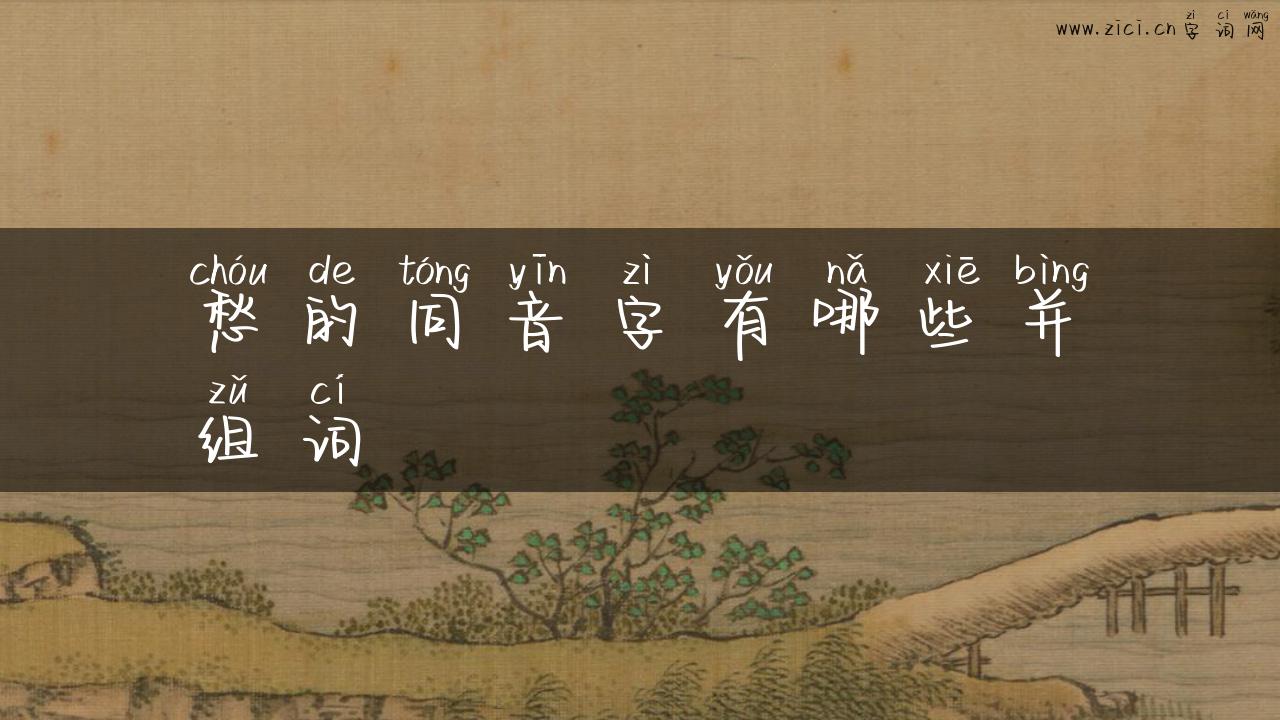 zì cí wǎng
www.zici.cn 字词网
chóu de tóng yīn zì yǒu nǎ xiē bìng
愁的同音字有哪些并
zǔ cí
组词